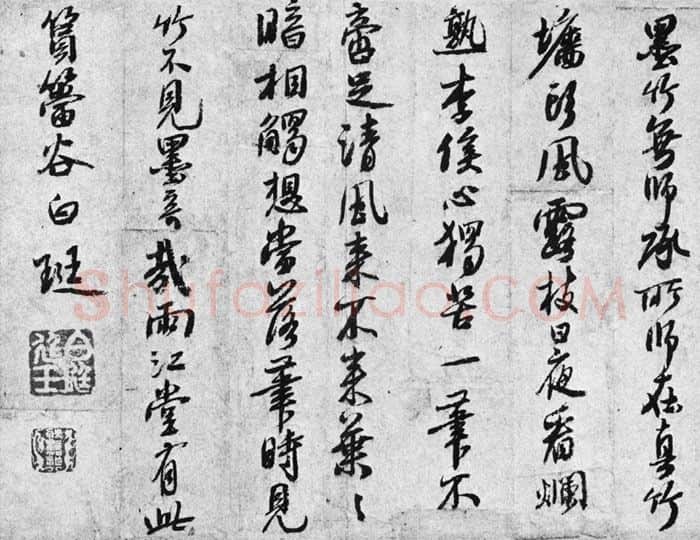 墨竹無師承所師在真竹
墻頭風露枝日夜看爛
熟李侯心獨苦一筆不
啻足清風来不来葉〻
暗相觸想當落筆時見
竹不見墨奇哉兩江堂有此
篔簹谷白珽
Shufaziliao.COM